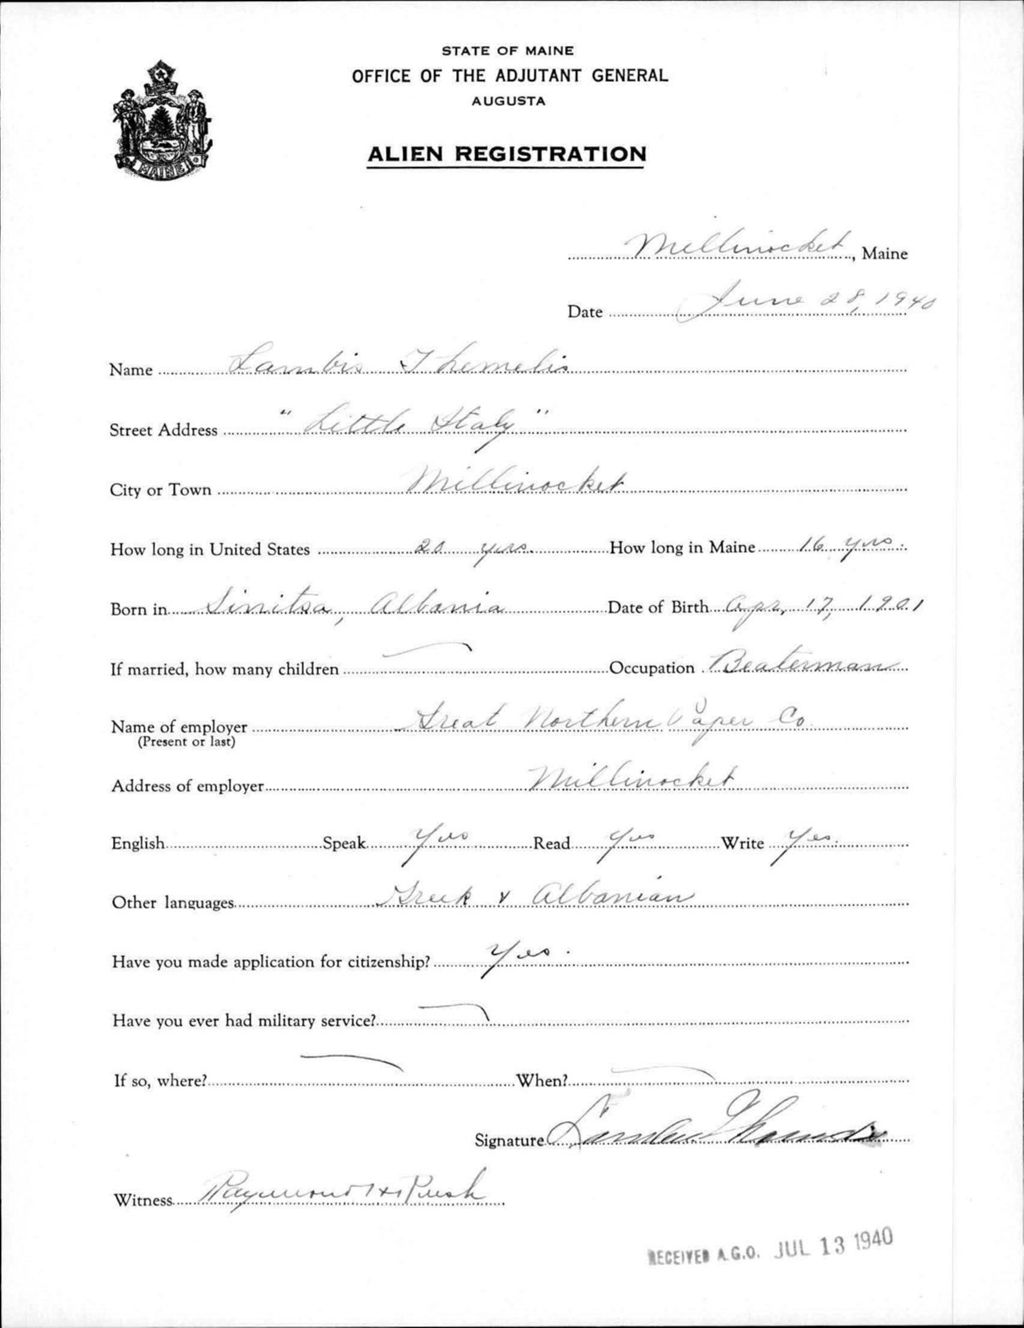 STATE OF MAINE
OFFICE OF THE ADJUTANT GENERAL
AUGUSTA
ALIEN REGISTRATION
MAINE
Millinocket, Maine
Date June 28, 1940
Name Lambis Themelis
Street Address "Little Italy"
City or Town Millinocket
How long in United States 20 yrs. How long in Maine 16 yrs.
Born in Sinitsa, Albania Date of Birth Apr. 17, 1901
If married, how many children — Occupation Beaterman
Name of employer Great Northern Paper Co.
(Present or last)
Address of employer Millinocket
English Speak Yes Read Yes Write Yes.
Other languages Greek & Albanian
Have you made application for citizenship? Yes.
Have you ever had military service? —
If so, where? — When? —
Signature
Witness Raymond H Rush
RECEIVED A.G.O. JUL 13 1940